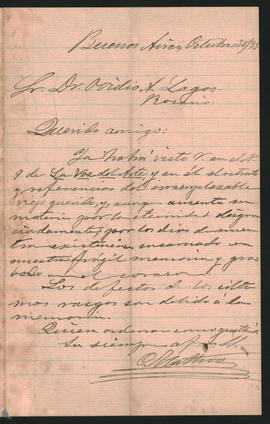 Buenos Aires, Octubre 30/93
Sr. Dr. Ovidio A. Lagos
Rosario.
Querido amigo:
Ya habrá visto V. en el N.
9 de La Voz del Arte, y en él el retrato
y referencias del irreemplazable
viejo querido, y aunque ausente su
materia por la eternidad desgra-
ciadamente, por los días de nues-
tra existencia, encarnado en
nuestra frágil memoria y graba
do en el corazon.
Los defectos de los últi
mos rasgos son debido a la
memoria.
Quiera ordenar como guste á
su siempre af.